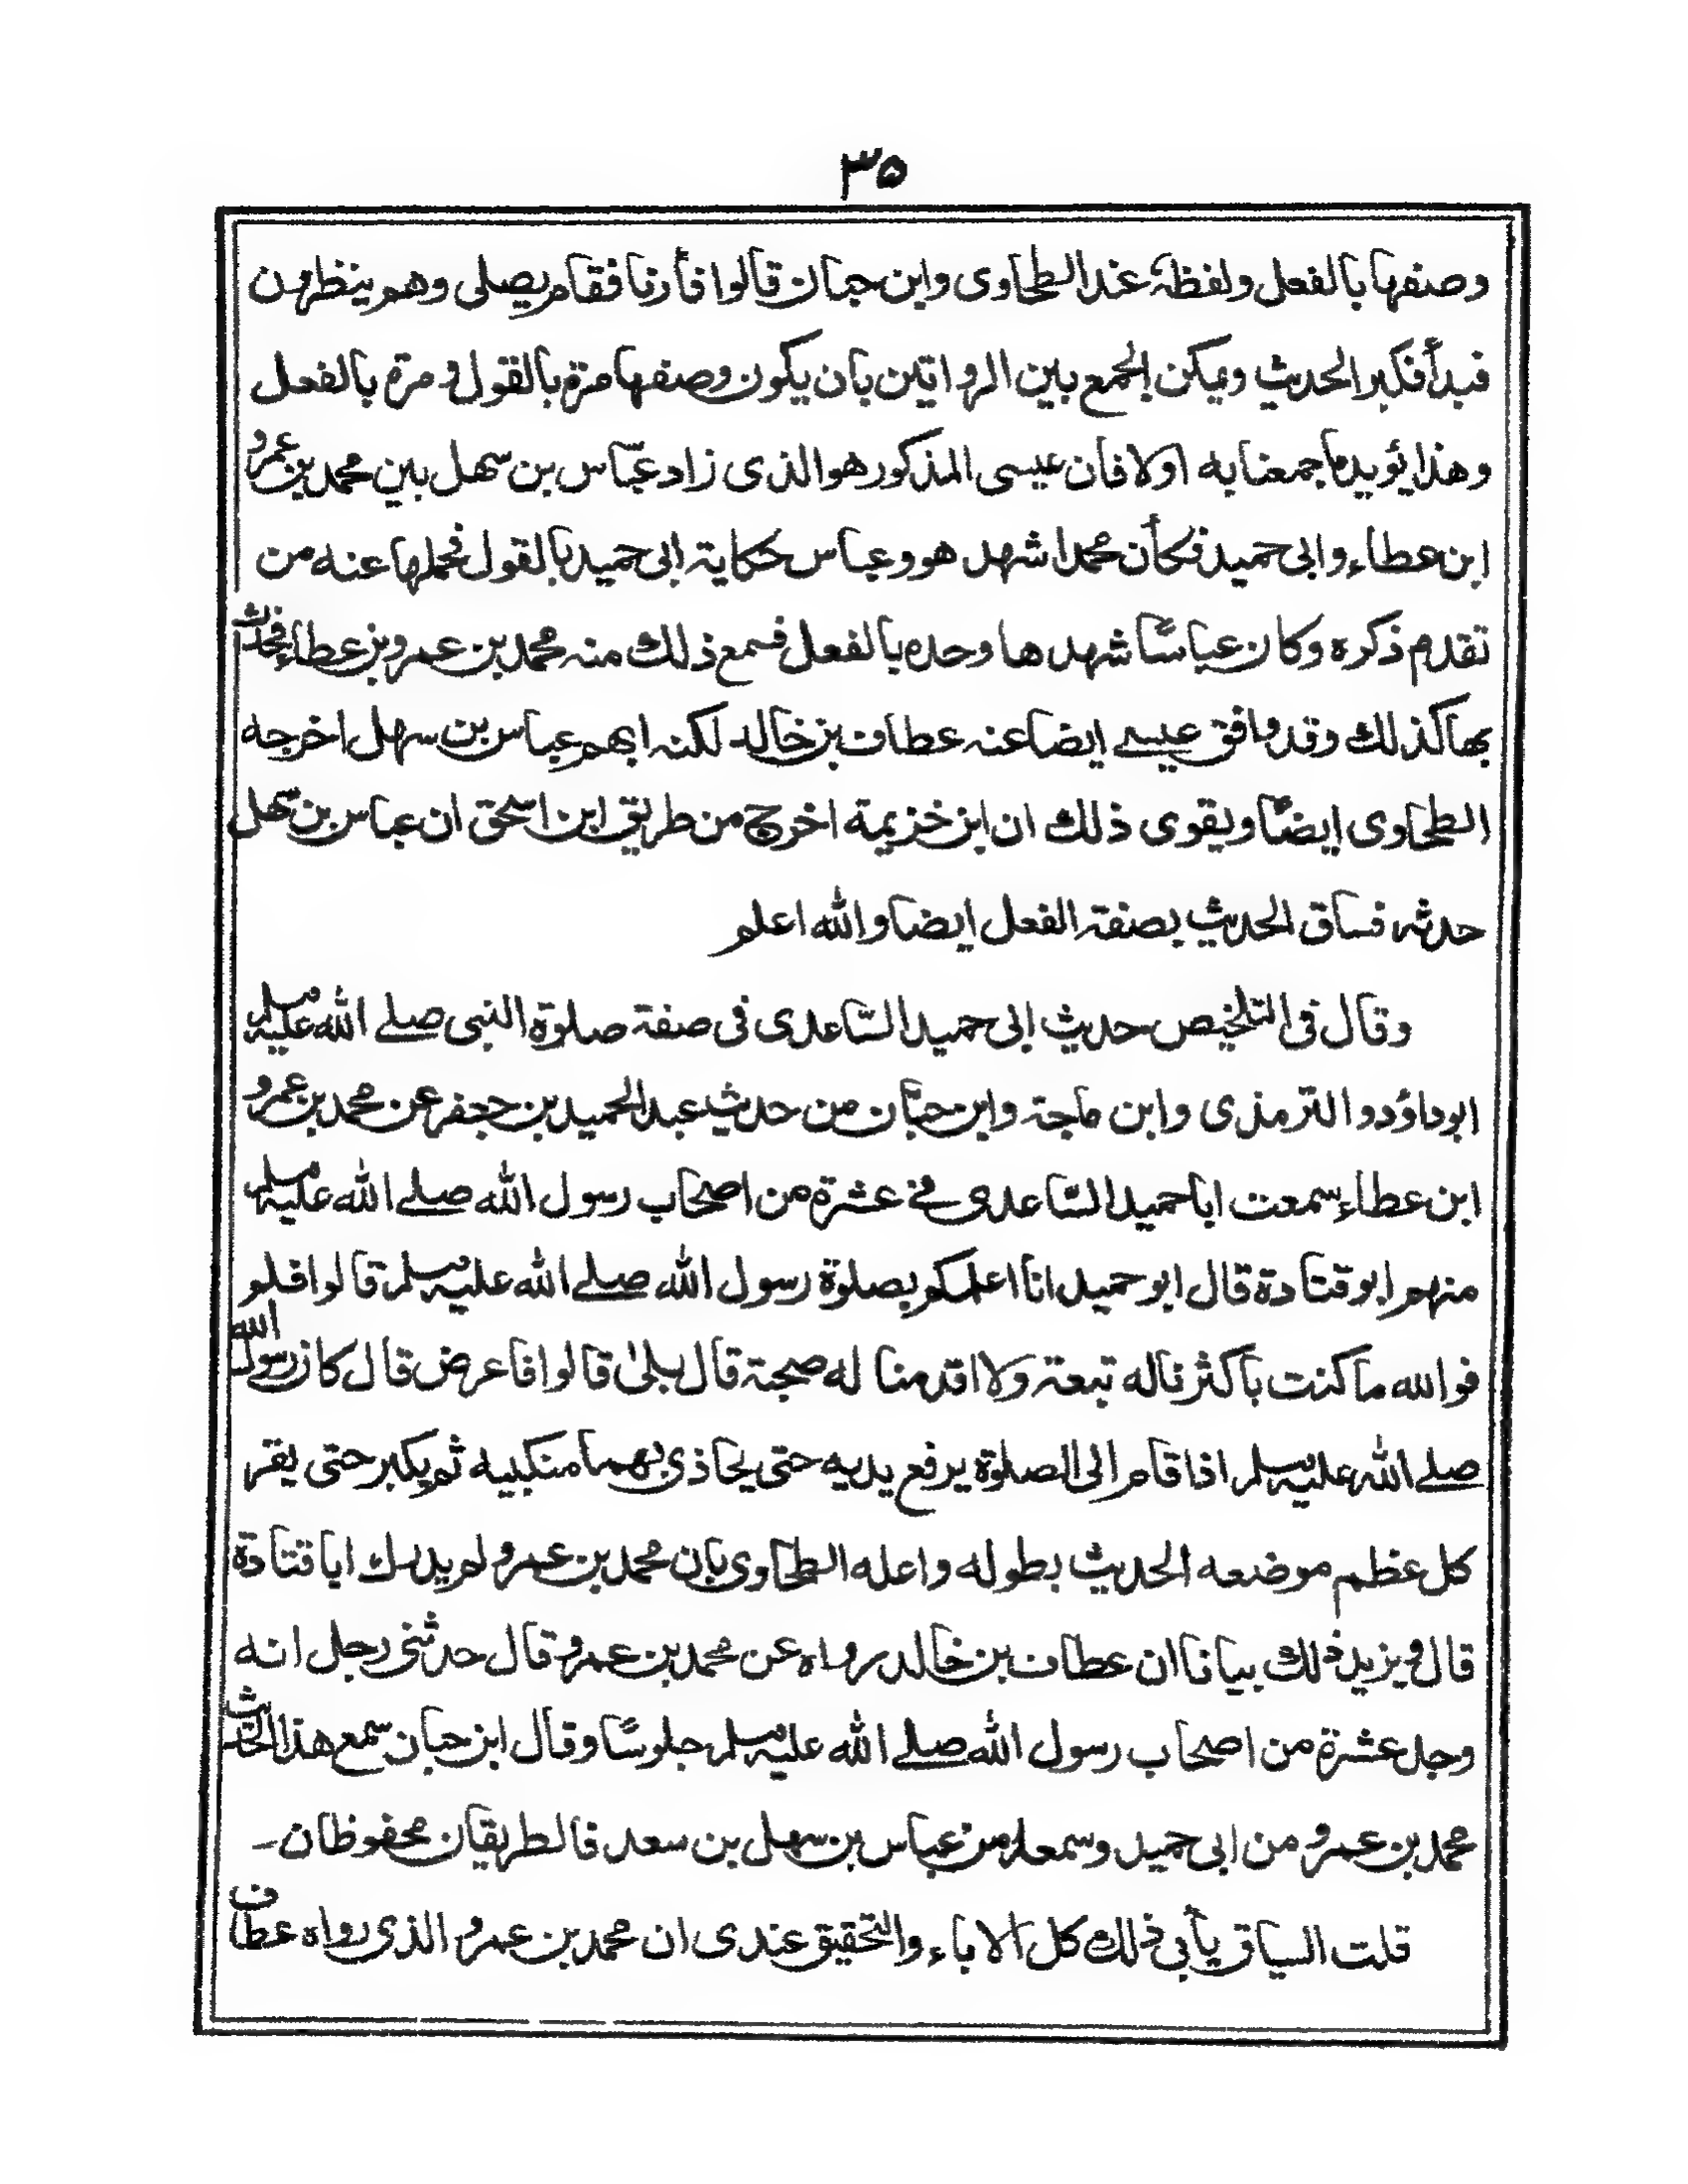 ٣٥
وصنفها بالفعل ولفظه عند الطحاوى وابن حبان قالوا فأرنا فقام يصلى وهم ينظرون
فبدأ فكبر الحديث ويمكن الجمع بين الرواتين بان يكون وصفها مرة بالقول و مرة بالفعل
وهذا يؤيد ما جمعنا به اولا فان عيسى المذكور هو الذى زاد عبّاس بن سهل بين محمد بن عمرو
ابن عطاء وابى حميد فكأن محمدا شهد هو وعباس حكاية ابى حميد بالقول فحملها عنه من
تقدم ذكره وكان عباسًا شهدها وحده بالفعل فسمع ذلك منه محمد بن عمرو بن عطاء فحدث
بها كذلك وقد وافق عيسے ايضا عنه عطاف بن خالد لكنه ابهم عباس بن سهل اخرجه
الطحاوى ايضًا ويقوى ذلك ان ابن خزيمة اخرج من طريق ابن اسحق ان عباس بن سهل
حدثه فساق الحديث بصفة الفعل ايضا والله اعلم
وقال فى التلخيص حديث ابى حميد السّاعدى فى صفة صلوة النبى صلے الله عليه وسلم
ابوداؤد والترمذى وابن ماجة وابن حبّان من حديث عبد الحميد بن جعفر عن محمد بن عمرو
ابن عطاء سمعت ابا حميد السّاعدى فے عشرة من اصحاب رسول الله صلے الله عليه وسلم
منهم ابو قتادة قال ابو حميد انا اعلمكم بصلوة رسول الله صلے الله عليه وسلم قالوا فلم
فوالله ما كنت بأكثرنا له تبعة ولا اقدمنا له صحبة قال بلىٰ قالوا فاعرض قال كان رسول الله
صلے الله عليه وسلم اذا قام الى الصلوة يرفع يديه حتى يحاذى بهما منكبيه ثم يكبر حتى يقر
كل عظم موضعه الحديث بطوله واعله الطحاوى بان محمد بن عمرو لم يدرك ابا قتادة
قال و يزيد ذلك بيانا ان عطاف بن خالد رواه عن محمد بن عمرو قال حدثنى رجل انه
وجد عشرة من اصحاب رسول الله صلے الله عليه وسلم جلوسًا وقال ابن حبان سمع هذا الحديث
محمد بن عمرو من ابى حميد وسمعه من عباس بن سهل بن سعد فالطريقان محفوظان -
قلت السياق يأبى ذلك كل الاباء والتحقيق عندى ان محمد بن عمرو الذى رواه عطاف